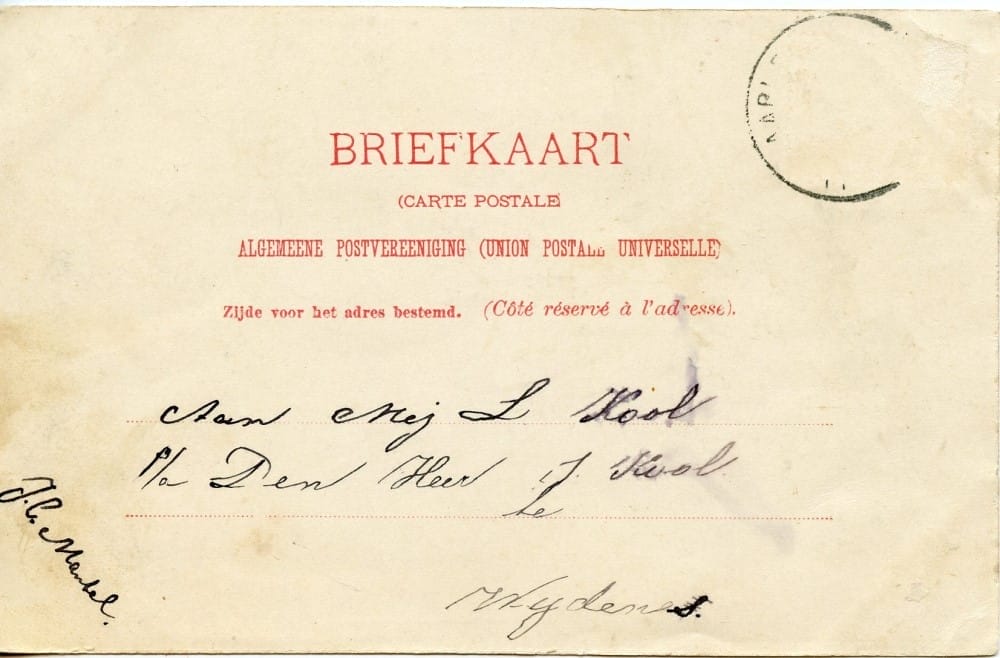 BRIEFKAART
(CARTE POSTALE)
ALGEMEENE POSTVEREENIGING (UNION POSTALE UNIVERSELLE)
Zijde voor het adres bestemd. (Côté réservé à l'adresse).
Aan Mej L Kool
p/a Den Heer J. Kool
te
Wydenes.
J.C. Mantel.